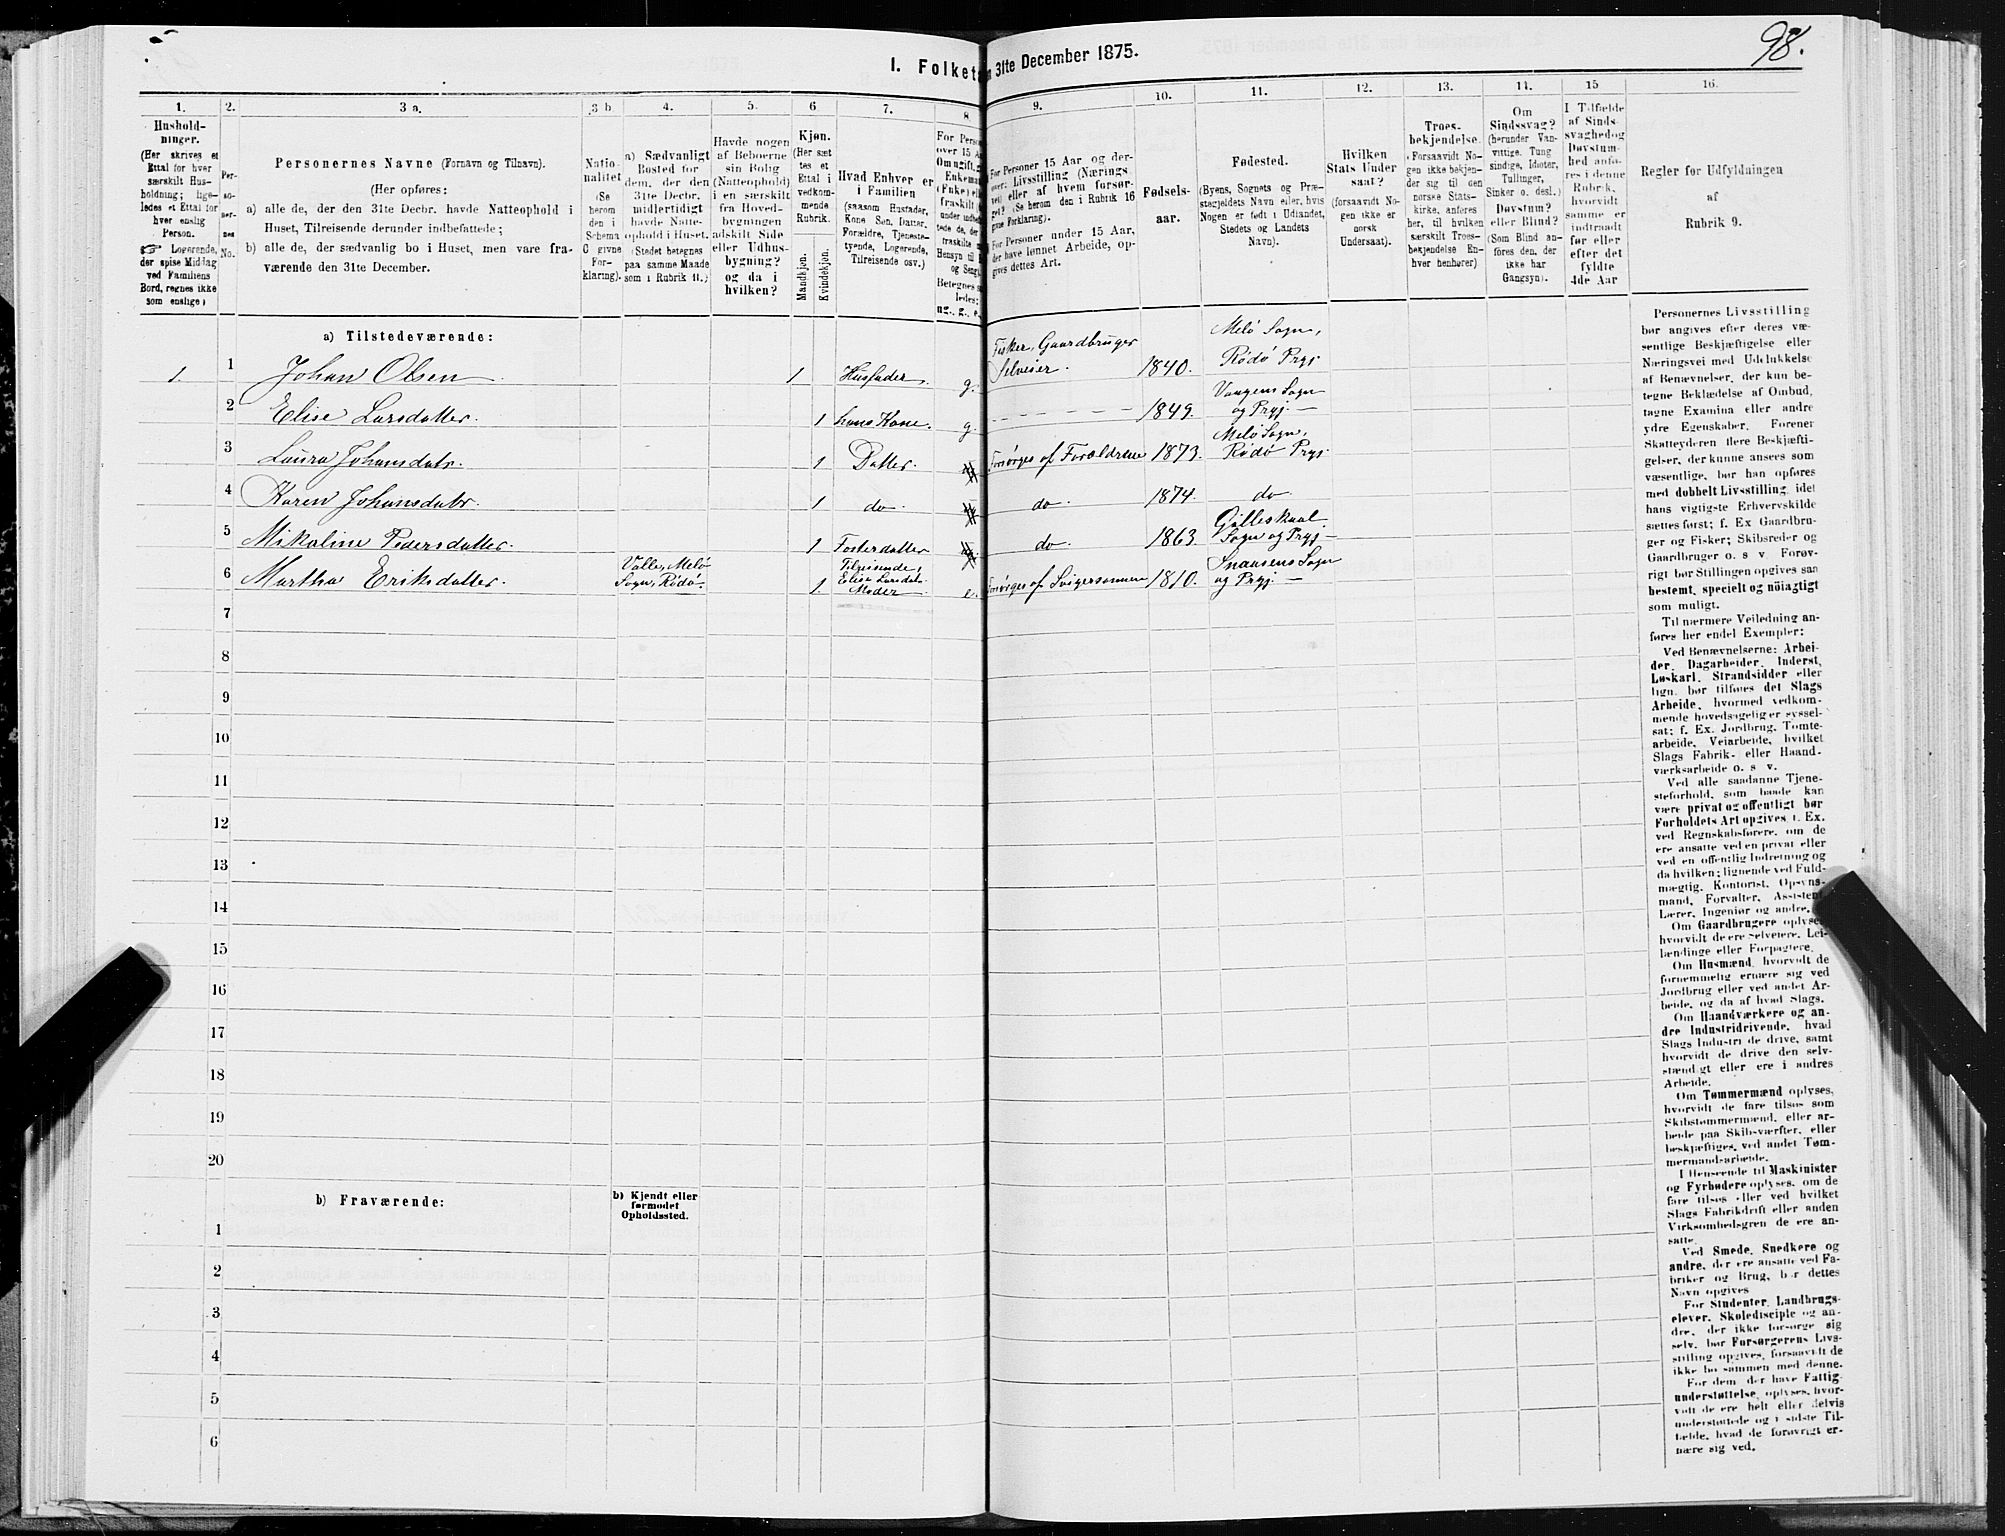 98.
I. Folket
31te December 1875.
1. 2. 3 a. 3 b 4. 5. 6 7. 8. 9. 10. 11. 12. 13. 14. 15 16.
Hushold-
ninger.
(Her skrives et
Ettal for hver
særskilt Hus-
holdning; lige-
ledes et Ettal for
hver enslig
Person.
Logerende,
der spise Middag
ved Familiens
Bord, regnes ikke
som enslige)
Per-
so-
ner-
nes
No.
Personernes Navne (Fornavn og Tilnavn).
(Her opføres:
a) alle de, der den 31te Decbr. havde Natteophold i
Huset, Tilreisende derunder indbefattede;
b) alle de, der sædvanlig bo i Huset, men vare fra-
værende den 31te December.
Natio-
nalitet
(Se
herom
den i
Schema
6 givne
For-
klaring).
a) Sædvanligt
Bosted for
dem, der den
31te Decbr.
midlertidigt
havde Natte-
ophold i Huset.
(Stedet betegnes
paa samme Maade
som i Rubrik 11.)
Havde nogen
af Beboerne
sin Bolig
(Natteophold)
i en særskilt
fra Hoved-
bygningen
adskilt Side
eller Udhus-
bygning?
og da i
hvilken?
Kjøn.
(Her sæt
tes et
Ettal i
vedkom-
mende
Rubrik.
Mandkjøn.
Kvindekjøn.
Hvad Enhver er
i Familien
(saasom Husfader,
Kone Søn, Datter,
Forældre, Tjeneste-
tyende, Logerende,
Tilreisende osv.)
For Perso
over 15 A
Om ugift,
Enkema
(Enke) el
fraskilt
under indbe
tede de, de
fraskilte
Hensyn til
og Seng
Betegnes s
ledes:
ug., g., e.
For Personer 15 Aar og der-
over: Livsstilling (Nærings-
vei) eller af hvem forsør-
get? (Se herom den i Rubrik 16
givne Forklaring).
For Personer under 15 Aar,
der have lønnet Arbeide, op-
gives dettes Art.
Fødsels-
aar.
Fødested.
(Byens, Sognets og Præ-
stegjeldets Navn eller, hvis
Nogen er født i Udlandet,
Stedets og Landets
Navn).
Hvilken
Stats Under
saat?
(forsaavidt No-
gen ikke er
norsk
Undersaat).
Troes-
bekjendelse
(Forsaavidt No-
gen ikke bekjen-
der sig til den
norske Stats-
kirke, anføres
her, til hvilken
særskilt Troes-
bekjendelse En-
hver henhører)
Om
Sindssvag?
(herunder Van-
vittige, Tung
sindige, Idioter,
Tullinger,
Sinker o. desl.)
Døvstum?
eller Blind?
(Som Blind an-
føres den, der
ikke har
Gangsyn).
I Tilfælde
af Sinds-
svaghed og
Døvstum-
hed anfø-
res i denne
Rubrik,
hvorvidt
samme er
indtraadt
før eller
efter det
fyldte
4de Aar
Regler for Udfyldningen
af
Rubrik 9.
a) Tilstedeværende:
1. 1 Johan Olsen 1 Husfader. g. Fisker, Gaardbruger Selveier. 1840. Melø Sogn, Rödö Prgj
2 Elise Larsdatter. 1 hans Kone. g. 1849. Vangens Sogn og Prgj.
3 Laura Johansdatr. 1 Datter Forsörges af Forældrene 1873. Melø Sogn, Rödö Prgj.
4 Karen Johansdatr 1 do. do. 1874. do.
5 Mikaline Pedersdatter. 1 Fosterdatter do. 1863. Gilleskaal Sogn og Prgj
6 Martha Eriksdatter. Valle, Melö Sogn, Rödö. 1. Tilreisende, Elise Larsdatr. Moder e. Forsörges af Svigersønnen 1810. Snaasens Sogn og Prgj.
7
8
9
10
11
12
13
14
15
16
17
18
19
20
b) Fraværende:
b) Kjendt eller
formodet
Opholdssted.
1
2
3
4
5
6
Personernes Livsstilling
bør angives efter deres væ-
sentlige Beskjæftigelse eller
Næringsvei med Udelukkelse
af Benævnelser, der kun be-
tegne Beklædelse af Ombud,
tagne Examina eller andre
ydre Egenskaber. Forener
Skatteyderen flere Beskjæfti-
gelser, der kunne ansees som
væsentlige, bør han opføres
med dobbelt Livsstilling, idet
hans vigtigste Erhvervskilde
sættes først; f. Ex Gaardbru-
ger og Fisker; Skibsreder og
Gaardbruger o. s v Forøv-
rigt bør Stillingen opgives saa
bestemt, specielt og nöiagtigt
som muligt.
Til nærmere Veiledning an-
føres her endel Exempler:
Ved Benævnelserne: Arbei-
der, Dagarbeider, Inderst,
Løskarl, Strandsidder eller
lign. bør tilføies det Slags
Arbeide, hvormed vedkom-
mende hovedsagelig er syssel-
sat; f. Ex. Jordbrug, Tomte-
arbeide, Veiarbeide, hvilket
Slags Fabrik- eller Haand-
værksarbeide o. s v.
Ved alle saadanne Tjene-
steforhold, som baade kan
være privat og offentligt bør
Forholdets Art opgives, f. Ex.
ved Regnskabsførere, om de
ere ansatte ved en privat eller
ved en offentlig Indretning og
da hvilken; lignende ved Fuld-
mægtig, Kontorist, Opsyns-
mand, Forvalter, Assistent,
Lærer, Ingeniør og andre.
Om Gaardbrugere oplyses,
hvorvidt de ere Selveiere, Lei-
lændinge eller Forpagtere.
Om Husmænd, hvorvidt de
fornemmelig ernære sig ved
Jordbrug eller ved andet Ar-
beide, og da af hvad Slags.
Om Haandværkere og an-
dre Industridrivende, hvad
Slags Industri de drive, samt
hvorvidt de drive den selv-
stændigt eller ere i andres
Arbeide.
Om Tømmermænd oplyses,
hvorvidt de fare tilsøs som
Skibstømmermænd, eller ar-
beide paa Skibsværfter, eller
beskjæftiges ved andet Tøm-
mermandsarbeide.
I Henseende til Maskinister
og Fyrbødere oplyses, om de
fare tilsøs eller ved hvilket
Slags Fabrikdrift eller anden
Virksomhedsgren de ere an-
satte.
Ved Smede, Snedkere og
andre, der ere ansatte ved Fa-
briker og Brug, bør dettes
Navn opgives
For Studenter, Landbrugs-
elever, Skoledisciple og an-
dre, der ikke forsørge sig
selv, bør Forsørgerens Livs-
stilling opgives, forsaavidt de
ikke bo sammen med denne.
For dem, der have Fattig-
understøttelse, oplyses, hvor-
vidt de ere helt eller delvis
understøttede og i sidste Til-
fælde, hvad de forøvrigt er-
nære sig ved.